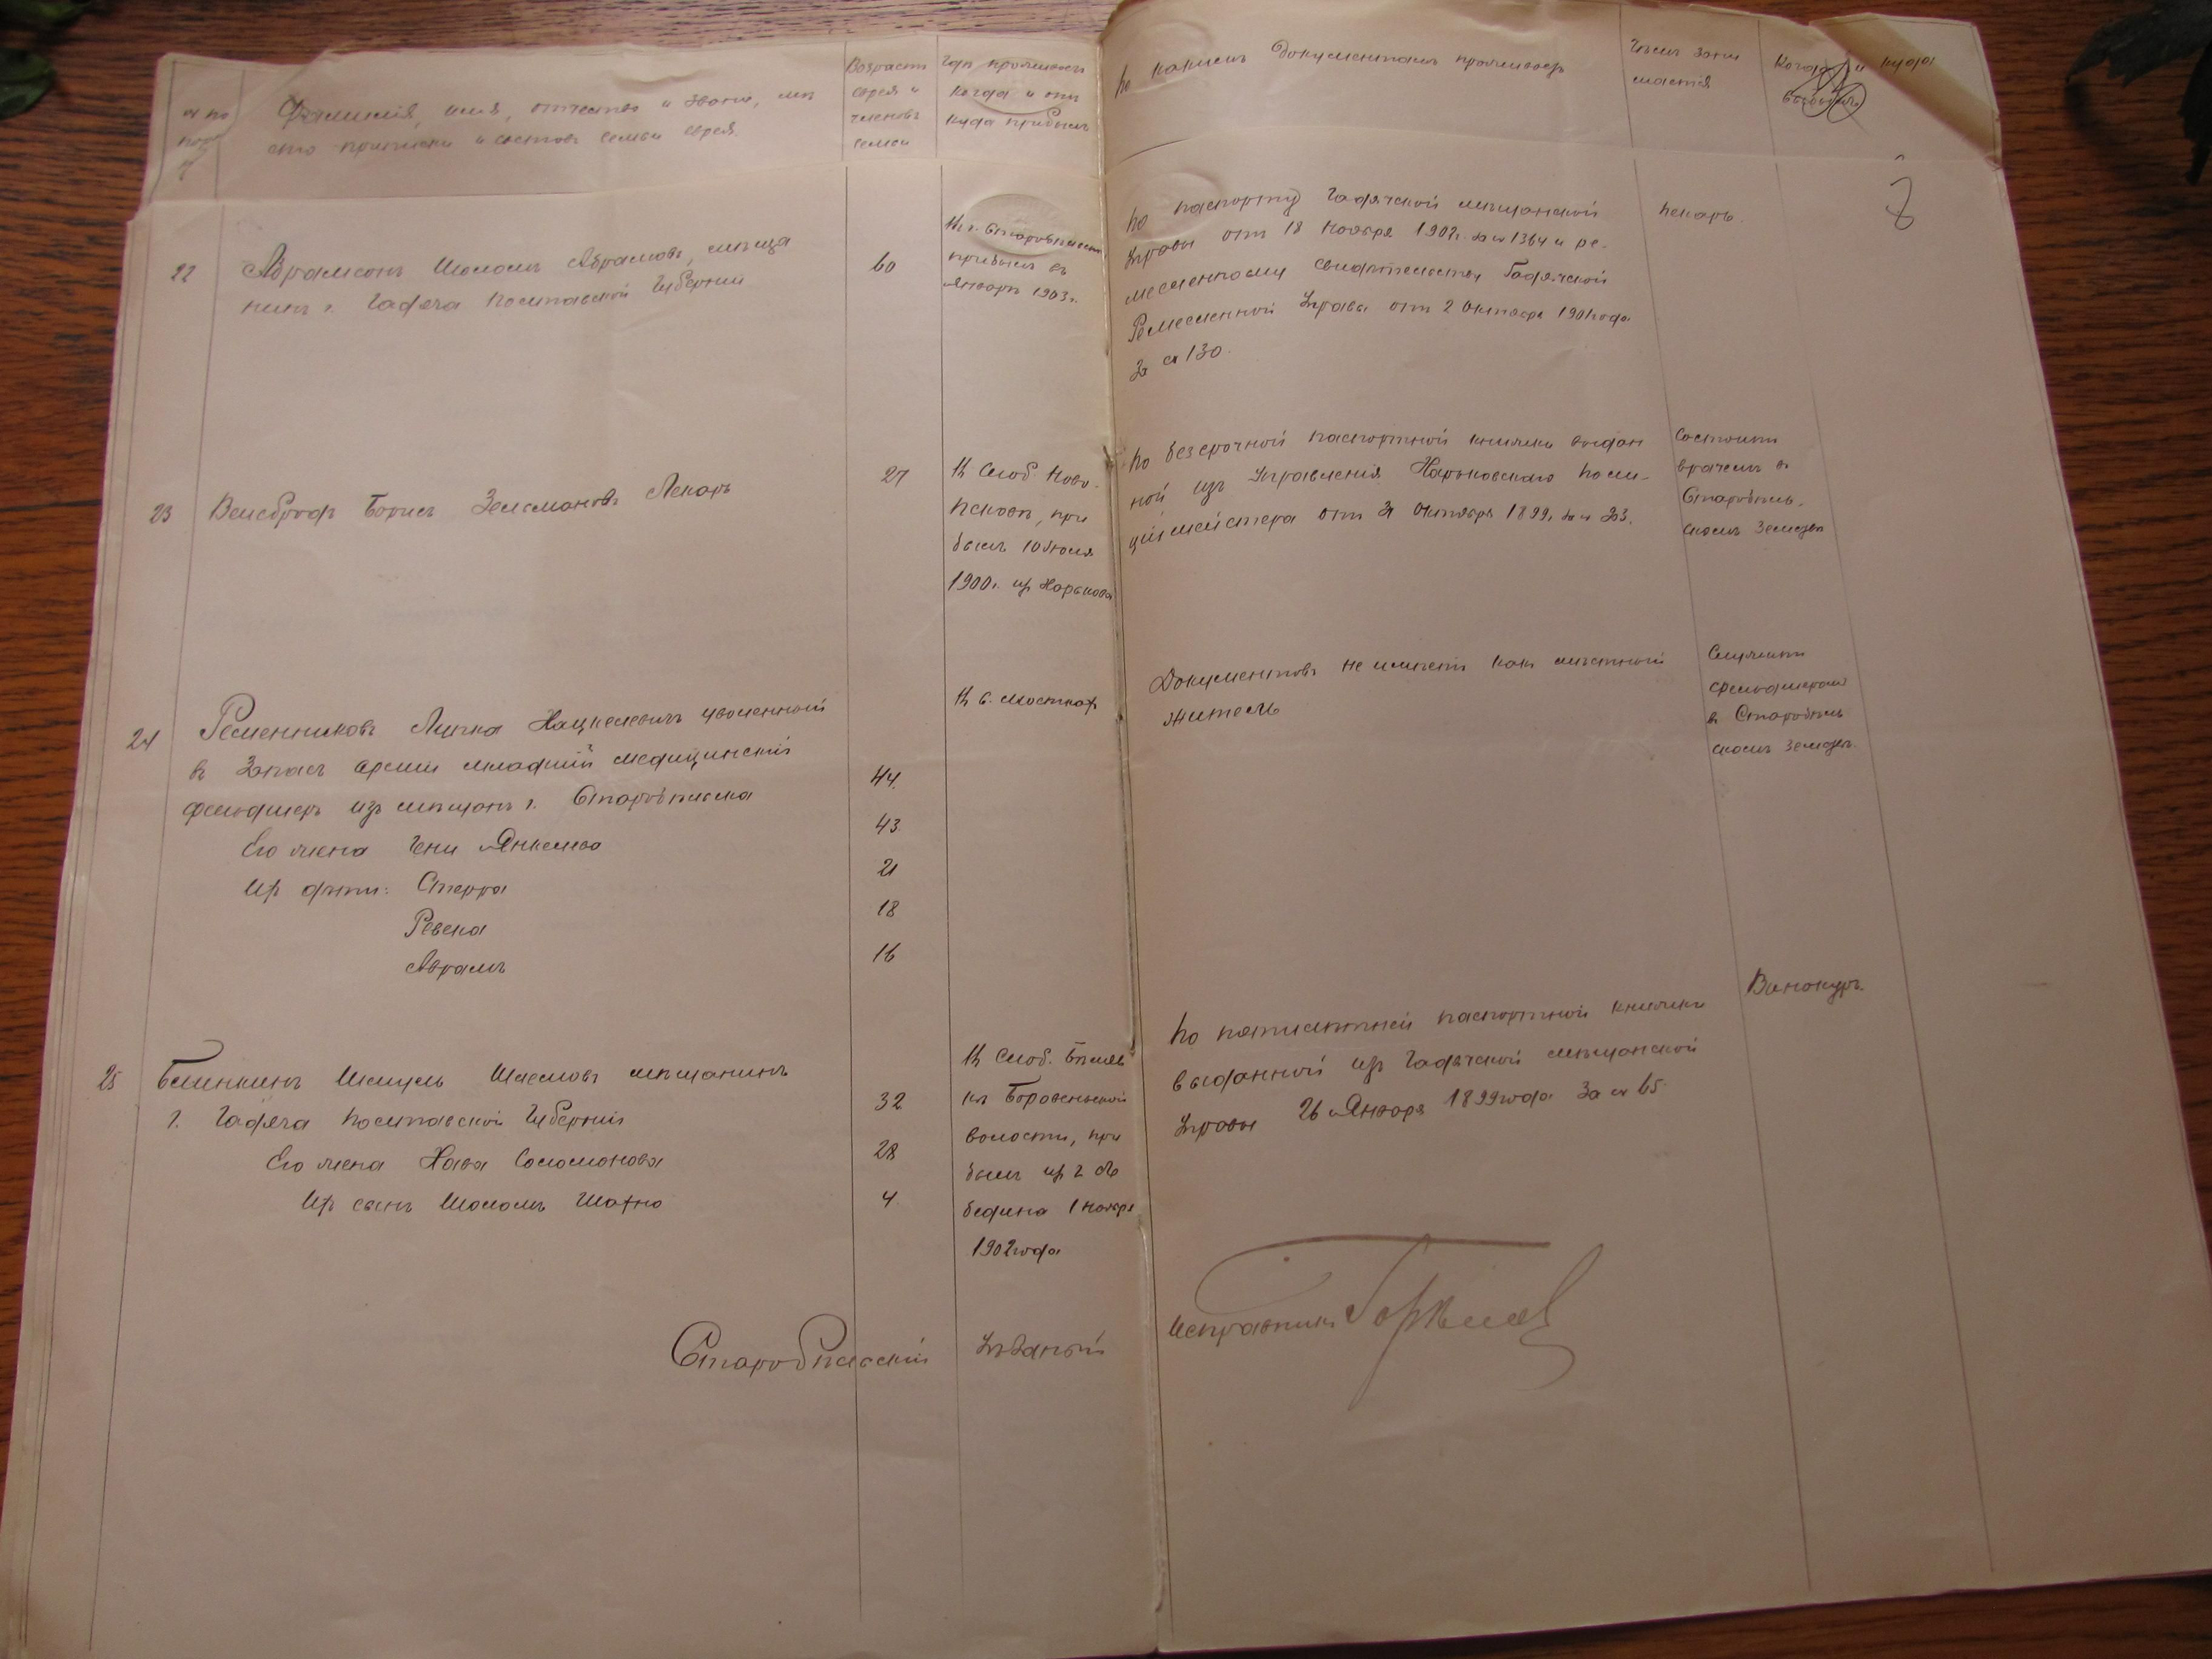 № по
поря
Фамилія, имя, отчество и званіе, мѣ
сто приписки и составъ семьи еврея.
Возрастъ
еврея и
членовъ
семьи
Гдѣ проживаетъ
когда и отъ
куда прибылъ
По какимъ документамъ проживаетъ
Чѣмъ зани
мается
Когда и куда
выбылъ
8
22
Абрамсонъ Шоломъ Абрамовъ, мѣща
нинъ г. Гадяча Полтавской Губерніи
60
Въ г. Старобѣльскѣ
прибылъ въ
Январѣ 1903 г.
По паспорту Гадячской мѣщанской
Управы отъ 18 Ноября 1902 г. за № 1364 и ре-
месленному свидѣтельству Гадячской
Ремесленной Управы отъ 2 Октября 1901 года
за № 130.
Пекарь.
23
Вейсбродъ Борисъ Зельмановъ Лекарь
27
Въ Слоб. Ново-
Псковѣ, при
былъ 10 Іюля
1900 г. изъ Харькова
По безсрочной паспортной книжкѣ выдан
ной изъ Управленія Харьковскаго Поли-
ціймейстера отъ 21 Октября 1899 г. за №
Состоитъ
врачемъ въ
Старобѣль-
скомъ Земствѣ
24
Ременниковъ Лицка Хацкелевичъ уволенный
въ запасъ арміи младшій медицинскій
фельдшеръ изъ мѣщанъ г. Старобѣльска
44.
Въ с. Мосткахъ
Документовъ не имѣетъ какъ мѣстный
житель
Служитъ
фельдшеромъ
въ Старобѣль
скомъ Земствѣ.
Его жена Гени Янкелева
43.
Ихъ дѣти: Стерра
21
Ревека
18
Абрамъ
16
25
Белинкинъ Шмуль Шаеловъ мѣщанинъ
г. Гадяча Полтавской Губерніи
32
Въ Слоб. Бѣлень
кой Боровеньской
волости, при
былъ изъ г. Ле
бедина 1 Ноября
1902 года
По пятилѣтней паспортной книжкѣ
выданной изъ Гадячской мѣщанской
Управы 26 Января 1899 года за № 65
Винокуръ.
Его жена Хава Соломонова
28
Ихъ сынъ Шоломъ Шахно
4.
Старобѣльскій Уѣздный Исправникъ